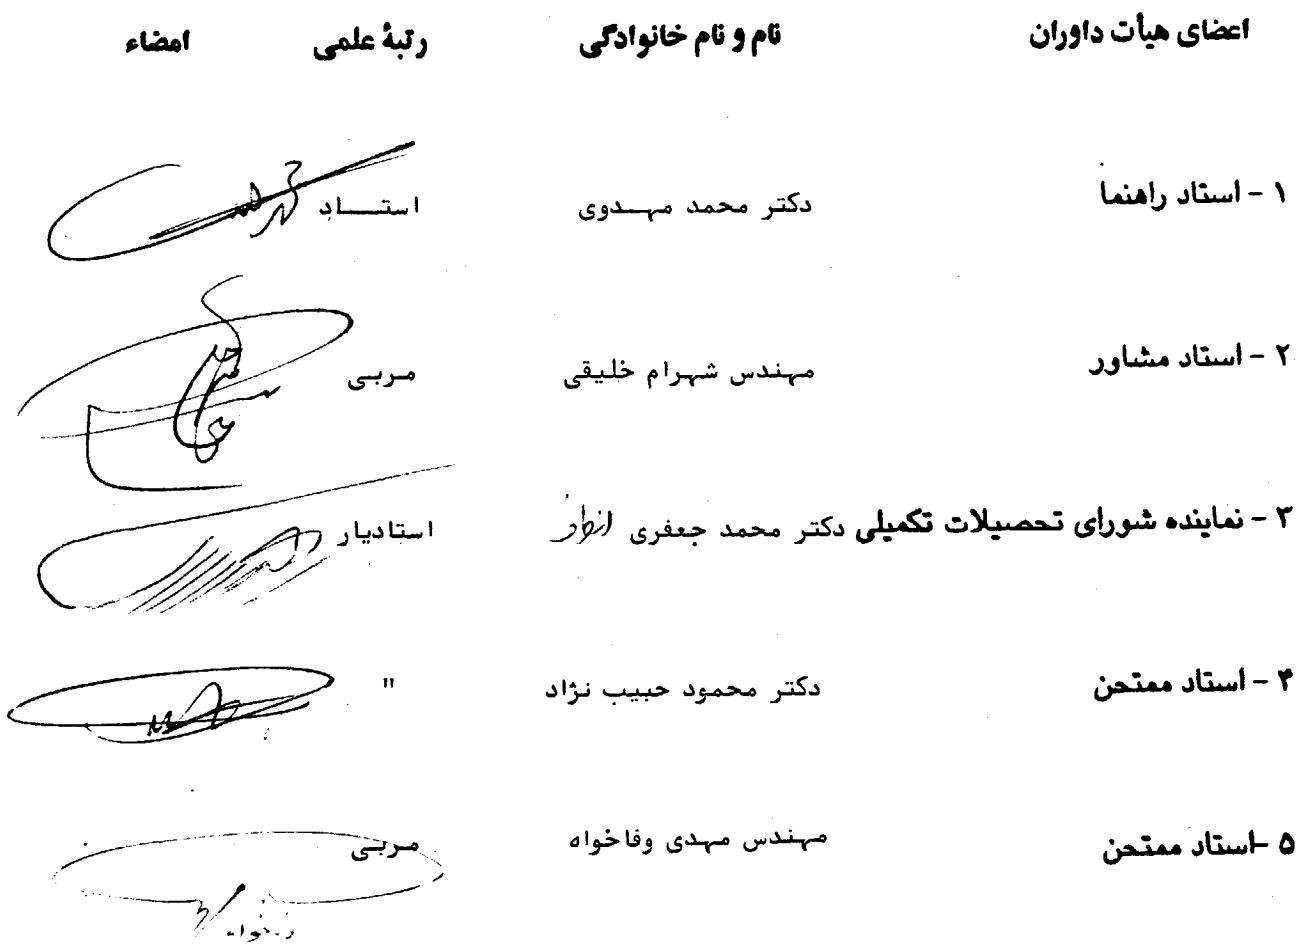 اعضای هیأت داوران نام و نام خانوادگی رتبهٔ علمی امضاء
۱ - استاد راهنما دکتر محمد مهـدوی استــاد
۲ - استاد مشاور مهندس شهرام خلیقی مربی
۳ - نماینده شورای تحصیلات تکمیلی دکتر محمد جعفری استادیار
۴ - استاد ممتحن دکتر محمود حبیب نژاد "
۵ -استاد ممتحن مهندس مهدی وفاخواه مربی